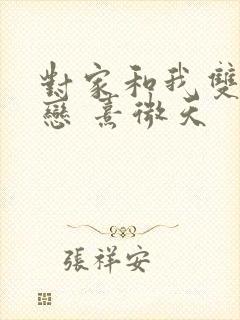 對家和我雙
戀 熹微天
張祥安